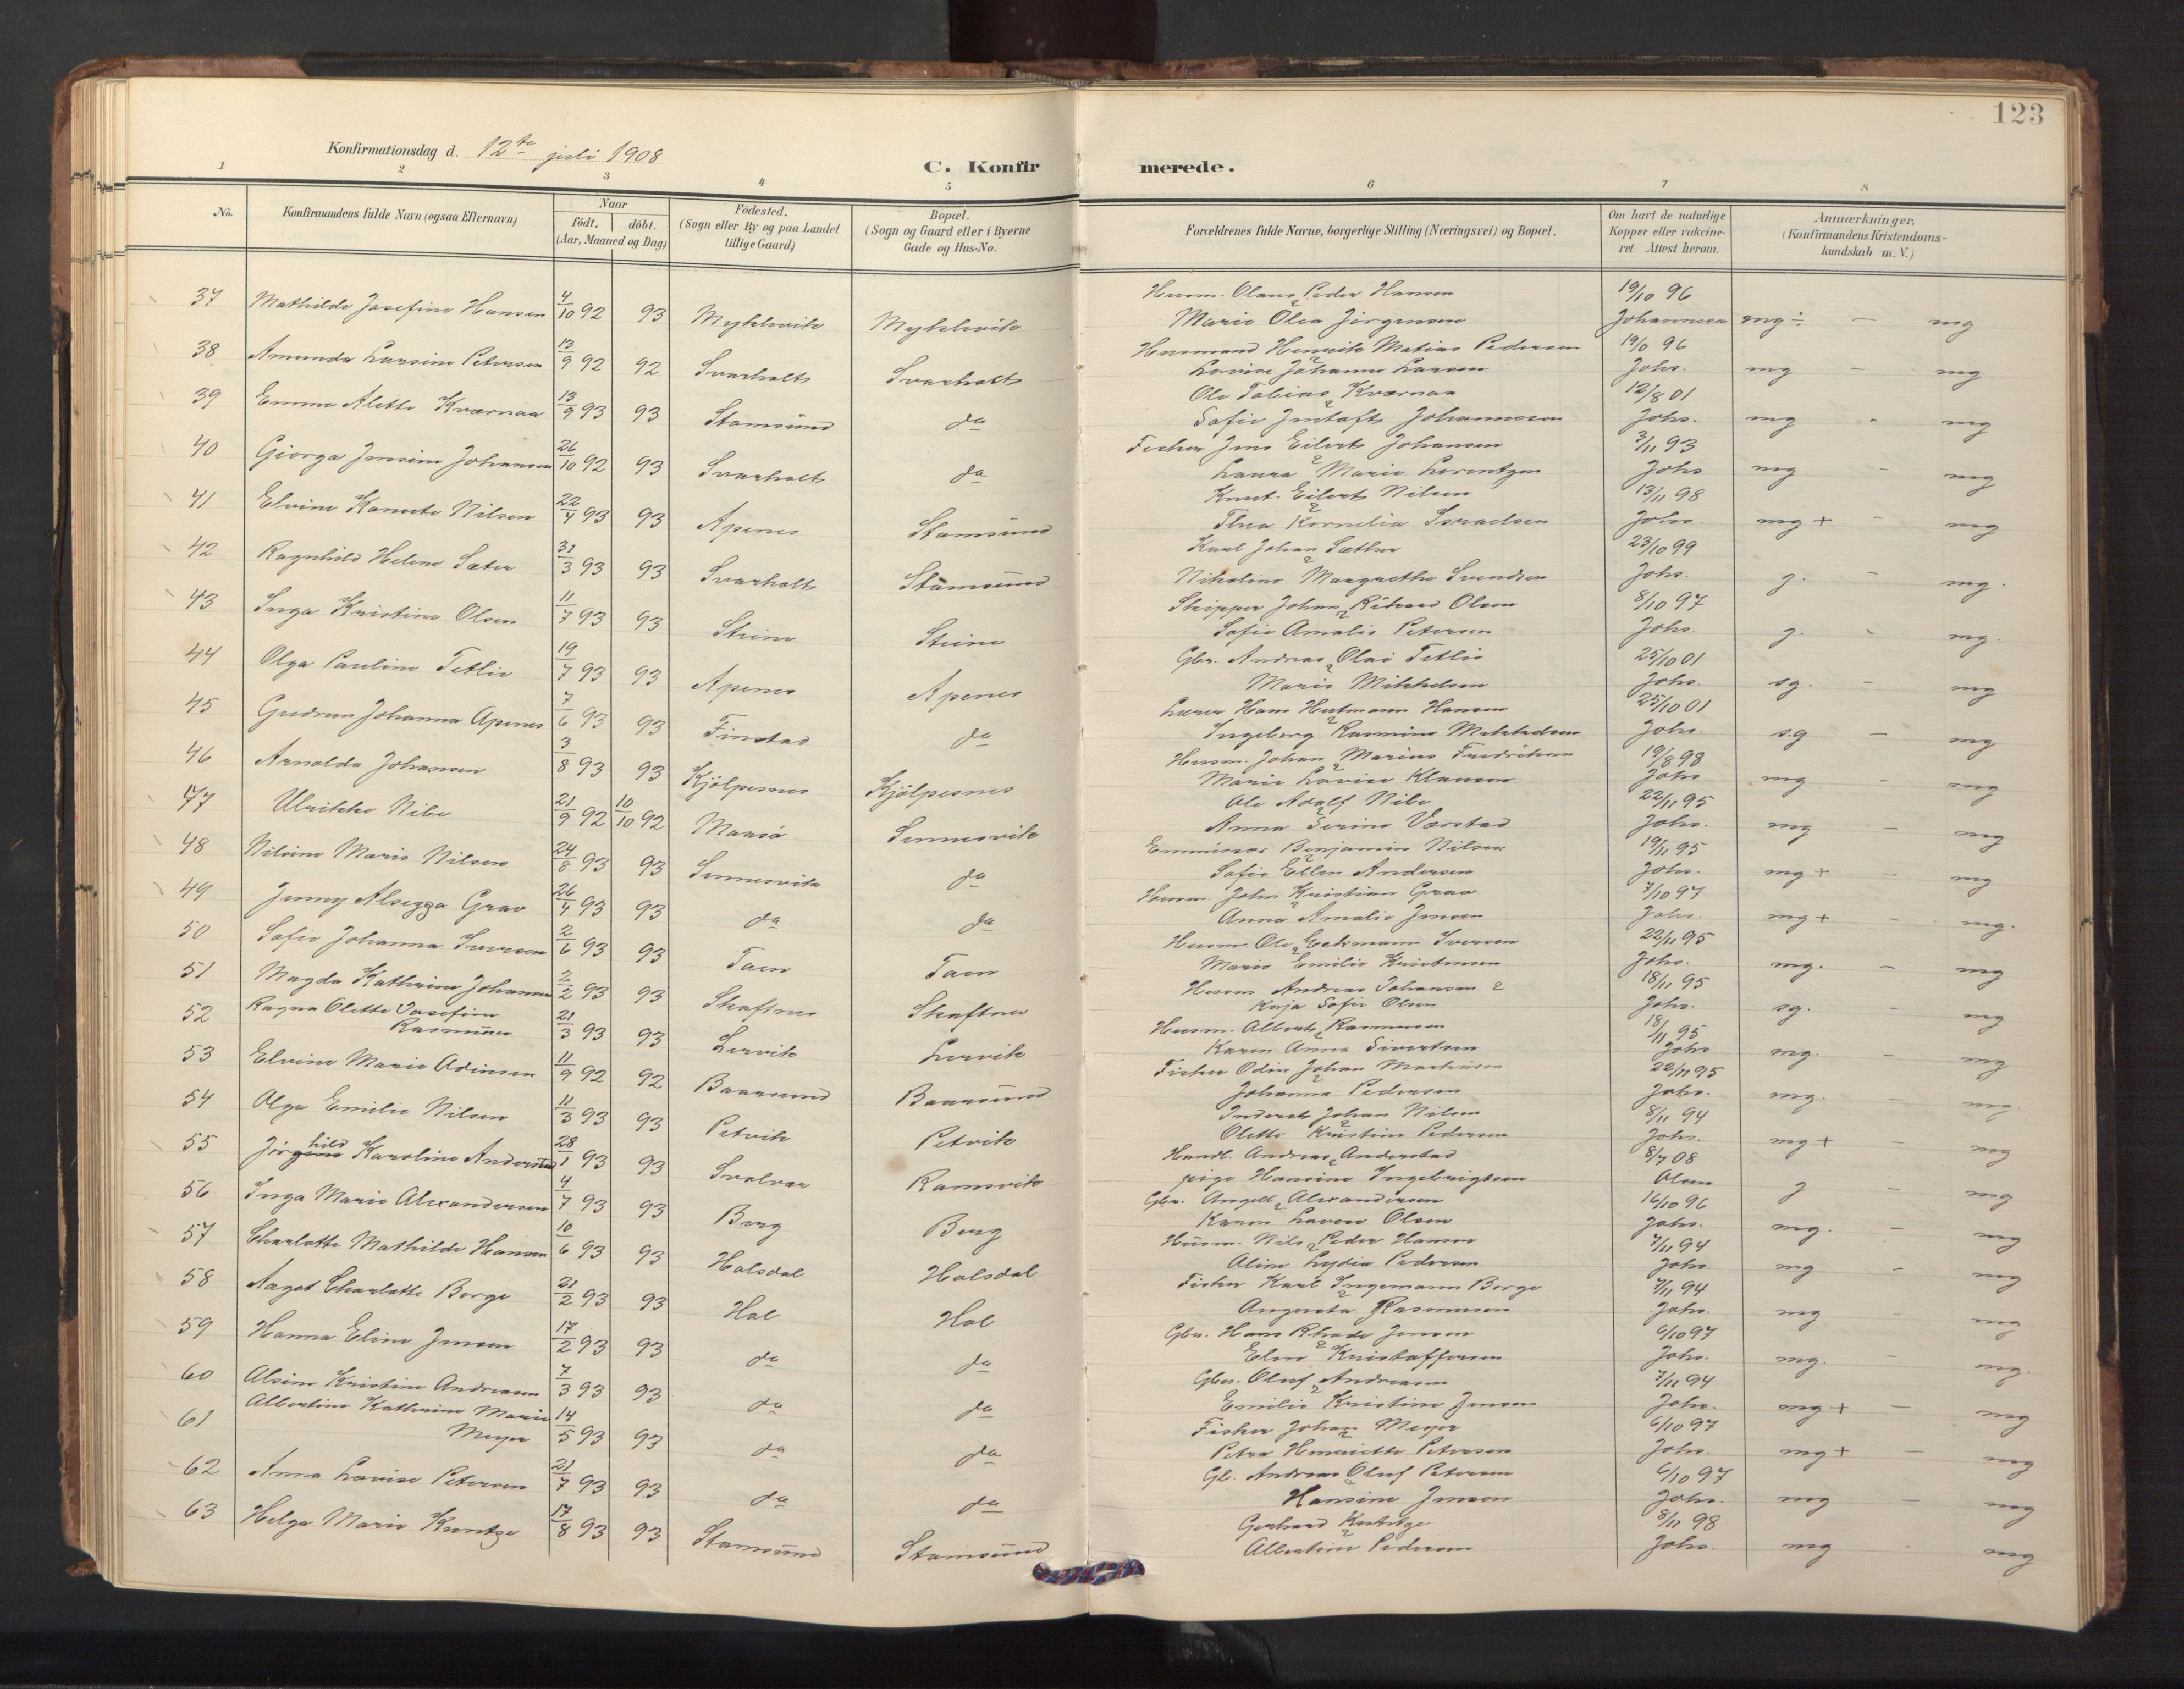 123
Konfirmationsdag d. 12te juli 1908
C. Konfirmerede.
1 2 3 4 5 6 7 8
No. Konfirmandens fulde Navn (ogsaa Efternavn) Naar født. døbt. (Aar, Maaned og Dag) Fødested. (Sogn eller By og paa Landet tillige Gaard) Bopæl. (Sogn og Gaard eller i Byerne Gade og Hus-No. Forældrenes fulde Navne, borgerlige Stilling (Næringsvei) og Bopæl. Om havt de naturlige Kopper eller vakcineret. Attest herom. Anmærkninger. (Konfirmandens Kristendomskundskab m. V.)
37 Mathilde Josefine Hansen 4/10 92 93 Myklevik Myklevik Husm. Olaus Peder Hansen 19/10 96
Marie Olea Jørgensen Johannesen mg ÷ — mg
38 Amunda Larsine Petersen 13/9 92 92 Svarholt Svarholt Husmand Henrik Matias Pedersen 19/0 96
Lovise Johanna Larsen Johs. mg — mg
39 Emma Alette Kværnaa 13/9 93 93 Stamsund do Ole Tobias Kværnaa 12/8 01
Sofie Johannesen Johs. mg - mg
40 Giørga Jensine Johansen 26/10 92 93 Svarholt do Fisker Jens Eilert Johansen 3/11 93
Laura Marie Lorentzen Johs mg - mg
41 Elvine Kanute Nilsen 22/4 93 93 Apenes Stamsund Knut Eilert Nilsen 13/11 98
Thea Kornelia Israelsen Johs. mg + - mg
42 Ragnhild Helene Sæter 31/3 93 93 Svarholt Stamsund Karl Johan Sæther 23/10 99
Nikoline Margrethe Svendsen Johs. g. - mg.
43 Inga Kristine Olsen 11/7 93 93 Steine Steine Skipper Johan Rikard Olsen 8/10 97
Sofie Amalie Petersen Johs. g. - mg.
44 Olga Pauline Tetlie 19/7 93 93 Apenes Apenes Gbr. Andreas Olai Tetlie 25/10 01
Marie Mikkelsen Johs. sg. - mg
45 Gudrun Johanna Apenes 7/6 93 93 Finstad do Lærer Hans Hansen 25/10 01
Ingeborg Rasmine Mikkelsen Johs. s.g — mg
46 Arnolda Johansen 3/8 93 93 Kjølpesnes Kjølpesnes Husm. Johan Marius Fredriksen 19/8 98
Marie Lovise Klausen Johs mg - mg
47 Ulrikke Nibe 21/9 92 10/10 92 Maasø Sennesvik Ole Adolf Nibe 22/11 95
Anna Serine Værstad Johs. mg - mg
48 Nilsine Marie Nilsen 24/8 93 93 Sennesvik do Benjamin Nilsen 19/11 95
Sofie Ellen Andersen Johs. mg + - mg
49 Jenny Alsegga Grav 26/4 93 93 do do Husm. Johs Kristian Grav 7/10 97
Anna Amalie Jensen Johs. mg + - mg.
50 Sofie Johanna Iversen 2/6 93 93 Taen Taen Husm. Ole Iversen 22/11 95
Marie Emilie Kristensen Johs. mg. — mg
51 Magda Kathrine Johansen 2/2 93 93 Skaftnes Skaftnes Husm Andreas Johansen 18/11 95
Kaja Sofie Olsen Johs. sg. - mg
52 Ragna Olette Josefine Rasmusen 21/3 93 93 Lervik Lervik Husm. Albert Rasmusen 18/11 95
Karen Anna Sivertsen Johs mg. - mg
53 Elvine Marie Odinsen 11/9 92 92 Baarsund Baarsund Fisker Odin Johan Markusen 22/11 95
Johanna Pedersen Johs. mg. - mg.
54 Olga Emilie Nilsen 11/3 93 93 Petvik Petvik Inderst Johan Nilsen 8/11 94
Olette Kristine Pedersen Johs. mg + - mg
55 Jørghild Karoline Anderstad 28/1 93 93 Svolvær Ramsvik Handl. Andreas Anderstad 8/7 08
pige Hansine Ingebrigtsen Olsen g - mg
56 Inga Marie Alexandersen 4/7 93 93 Berg Berg Gbr. Angell Alexandersen 16/10 96
Karen Lovise Olsen Johs. mg. - mg
57 Charlotte Mathilde Hansen 10/6 93 93 Holsdal Holsdal Husm. Nils Peder Hansen 7/11 94
Aline Lydia Pedersen Johs. mg - mg
58 Aagot Charlotte Borge 21/2 93 93 Hol Hol Fisker Karl Ingemann Borge 7/11 94
Augusta Rasmusen Johs. mg - mg
59 Hanna Eline Jensen 17/2 93 93 do do Gbr. Hans Rhode Jensen 6/10 97
Elen Kristoffersen Johs. mg. - mg.
60 Alsine Kristine Andreasen 7/3 93 93 do do Gbr. Oluf Andreasen 7/11 94
Emilie Kristine Jensen Johs. mg + — mg
61 Albertine Kathrine Marie Meyer 14/5 93 93 do do Fisker Johan Meyer 6/10 97
Petra Henriette Petersen Johs. mg + — mg
62 Anna Lovise Petersen 21/7 93 93 do do Gb. Andreas Oluf Petersen 6/10 97
Hansine Jensen Johs. mg — mg
63 Helga Marie Kuntze 17/8 93 93 Stamsund Stamsund Gerhard 8/11 98
Albertine Pedersen Johs. mg - mg